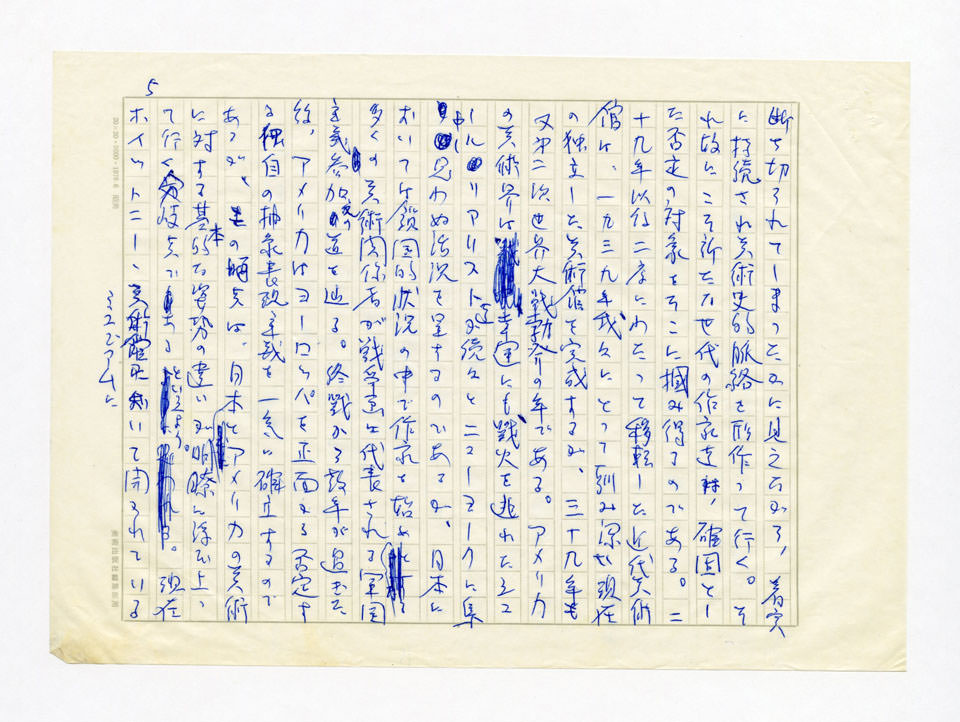 5
断ち切られてしまったかに見えながら、着実
に持続され美術史的脈絡を形作って行く。そ
れ故にこそ新たな世代の作家達は、確固とし
た否定の対象をそこに掴み得るのである。二
十九年以后二度にわたって移転した近代美術
館は、一九三九年我々にとって馴み深い現在
の独立した美術館を完成するが、三十九年も
又第二次世界大戦勃発の年である。アメリカ
の美術界は幸運にも戦火を逃れたシュ
ールリアリスト達が続々とニューヨークに集
中し思わぬ活況を呈するのであるが、日本に
おいては鎖国的状況の中で作家を始めとする
多くの美術関係者が戦争画に代表される軍国
主義参加への道を辿る。終戦から数年が過ぎた
后、アメリカはヨーロッパを正面から否定す
る独自の抽象表現主義を一気に確立するので
あるが、その時点は、日本とアメリカの美術
に対する基本的な姿勢の違いが明瞭に浮び上っ
て行く分岐点でというよう。現在
ホイットニー・美術館と続いて開られている
ミュージアムに
20×20・2000・1976.6
美術出版社編集部原用